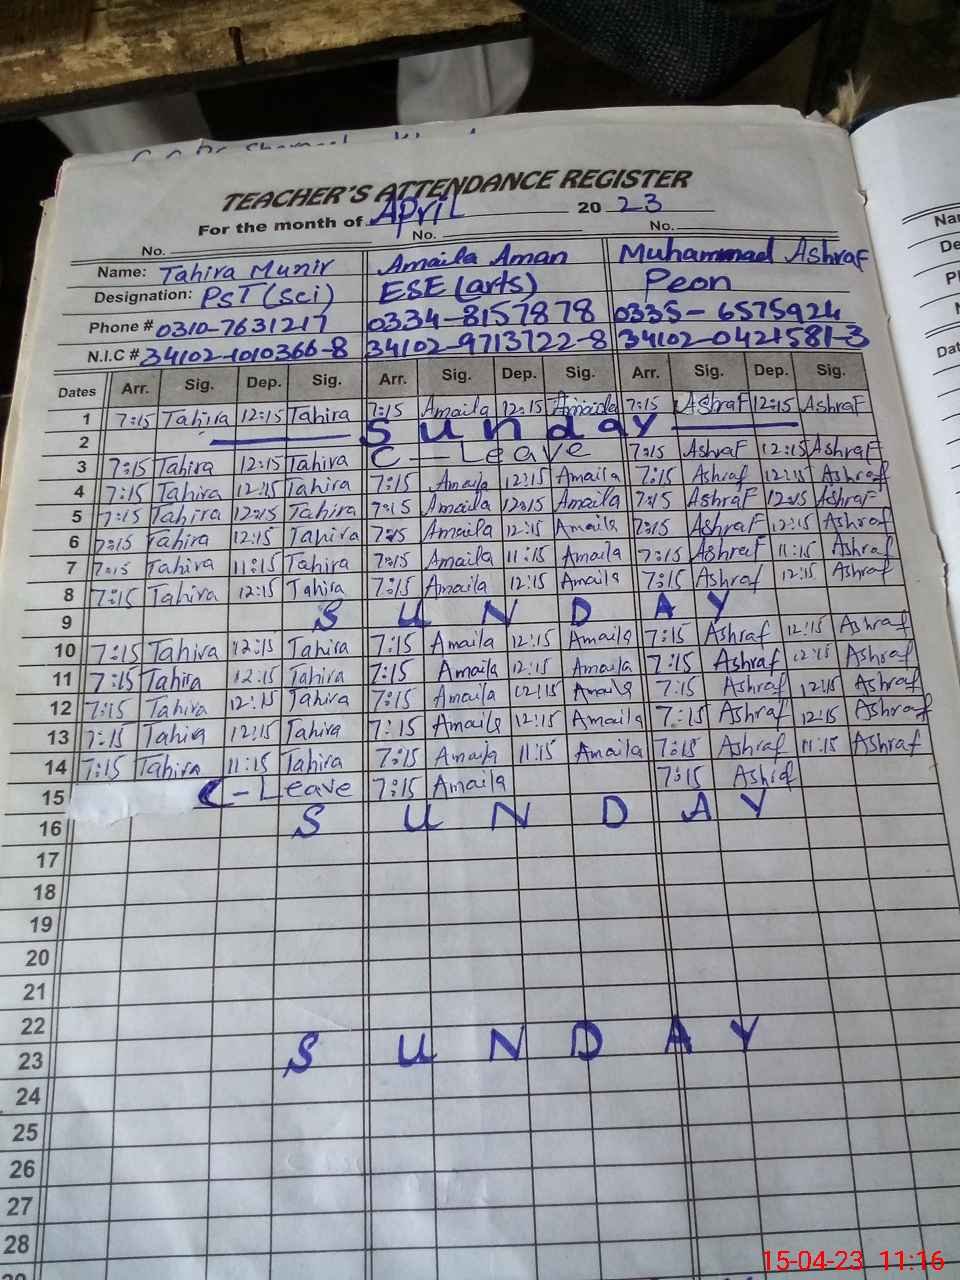 TEACHER'S ATTENDANCE REGISTER
For the month of April 2023
No. No. No.
Name: Tahira Munir Amaila Aman Muhammad Ashraf
Designation: PST (sci) ESE (arts) Peon
Phone # 0310-7631217 0334-8157878 0335-6575924
N.I.C # 34102-1010366-8 34102-9713722-8 34102-0421581-3
Dates Arr. Sig. Dep. Sig. Arr. Sig. Dep. Sig. Arr. Sig. Dep. Sig.
1 7:15 Tahira 12:15 Tahira 7:15 Amaila 12:15 Amaila 7:15 AshraF 12:15 AshraF
2 Sunday
3 7:15 Tahira 12:15 Tahira C-Leave 7:15 AshraF 12:15 AshraF
4 7:15 Tahira 12:15 Tahira 7:15 Amaila 12:15 Amaila 7:15 Ashraf 12:15 Ashraf
5 7:15 Tahira 12:15 Tahira 7:15 Amaila 12:15 Amaila 7:15 AshraF 12:15 AshraF
6 7:15 Tahira 12:15 Tahira 7:15 Amaila 12:15 Amaila 7:15 AshraF 12:15 Ashraf
7 7:15 Tahira 11:15 Tahira 7:15 Amaila 11:15 Amaila 7:15 AshraF 11:15 Ashraf
8 7:15 Tahira 12:15 Tahira 7:15 Amaila 12:15 Amaila 7:15 Ashraf 12:15 Ashraf
9 SUNDAY
10 7:15 Tahira 12:15 Tahira 7:15 Amaila 12:15 Amaila 7:15 Ashraf 12:15 Ashraf
11 7:15 Tahira 12:15 Tahira 7:15 Amaila 12:15 Amaila 7:15 Ashraf 12:15 Ashraf
12 7:15 Tahira 12:15 Tahira 7:15 Amaila 12:15 Amaila 7:15 Ashraf 12:15 Ashraf
13 7:15 Tahira 12:15 Tahira 7:15 Amaila 12:15 Amaila 7:15 Ashraf 12:15 Ashraf
14 7:15 Tahira 11:15 Tahira 7:15 Amaila 11:15 Amaila 7:15 Ashraf 11:15 Ashraf
15 C-Leave 7:15 Amaila 7:15 Ashraf
16 SUNDAY
17
18
19
20
21
22
23 SUNDAY
24
25
26
27
28
15-04-23 11:16